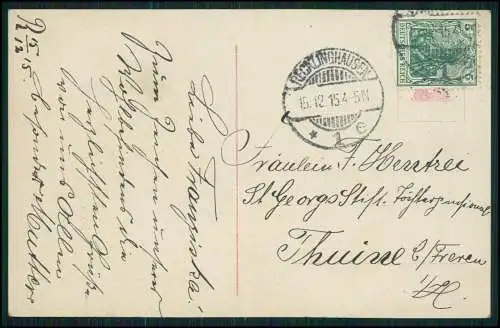 R 15/12 15
Liebe Franziska!
Zum Zeichen unseres
Wohlbefindens die
herzlichsten Grüße
von uns Allen
besonders Mutter
RECKLINGHAUSEN
15.12.15 4-5N
* 1 e
DEUTSCHES REICH
5 5
Fräulein F.
St Georgs Stift. Töchterpensionat
Thuine b/Freren
i/H